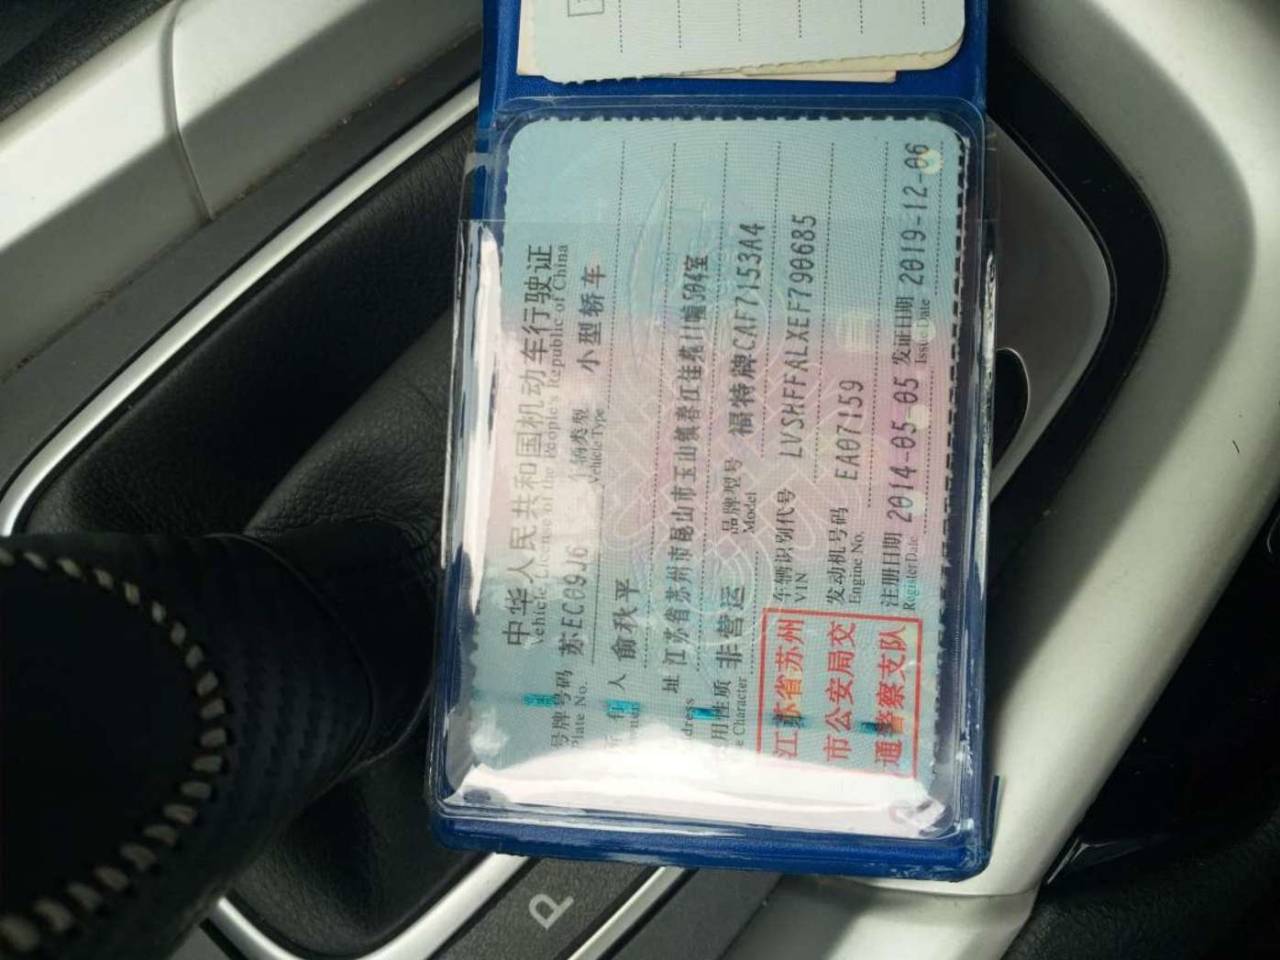 中华人民共和国机动车行驶证
Vehicle License of the People's Republic of China
号牌号码 苏EC09J6 车辆类型 小型轿车
Plate No. Vehicle Type
所有人 俞秋平
址 江苏省苏州市昆山市玉山镇春江佳苑11幢504室
用性质 非营运 品牌型号 福特牌CAF7153A4
Character Model
江苏省苏州
市公安局交
通警察支队
车辆识别代号 LVSHFFALXEF790685
VIN
发动机号码 EA07159
Engine No.
注册日期 2014-05-05 发证日期 2019-12-06
Register Date Issue Date
P